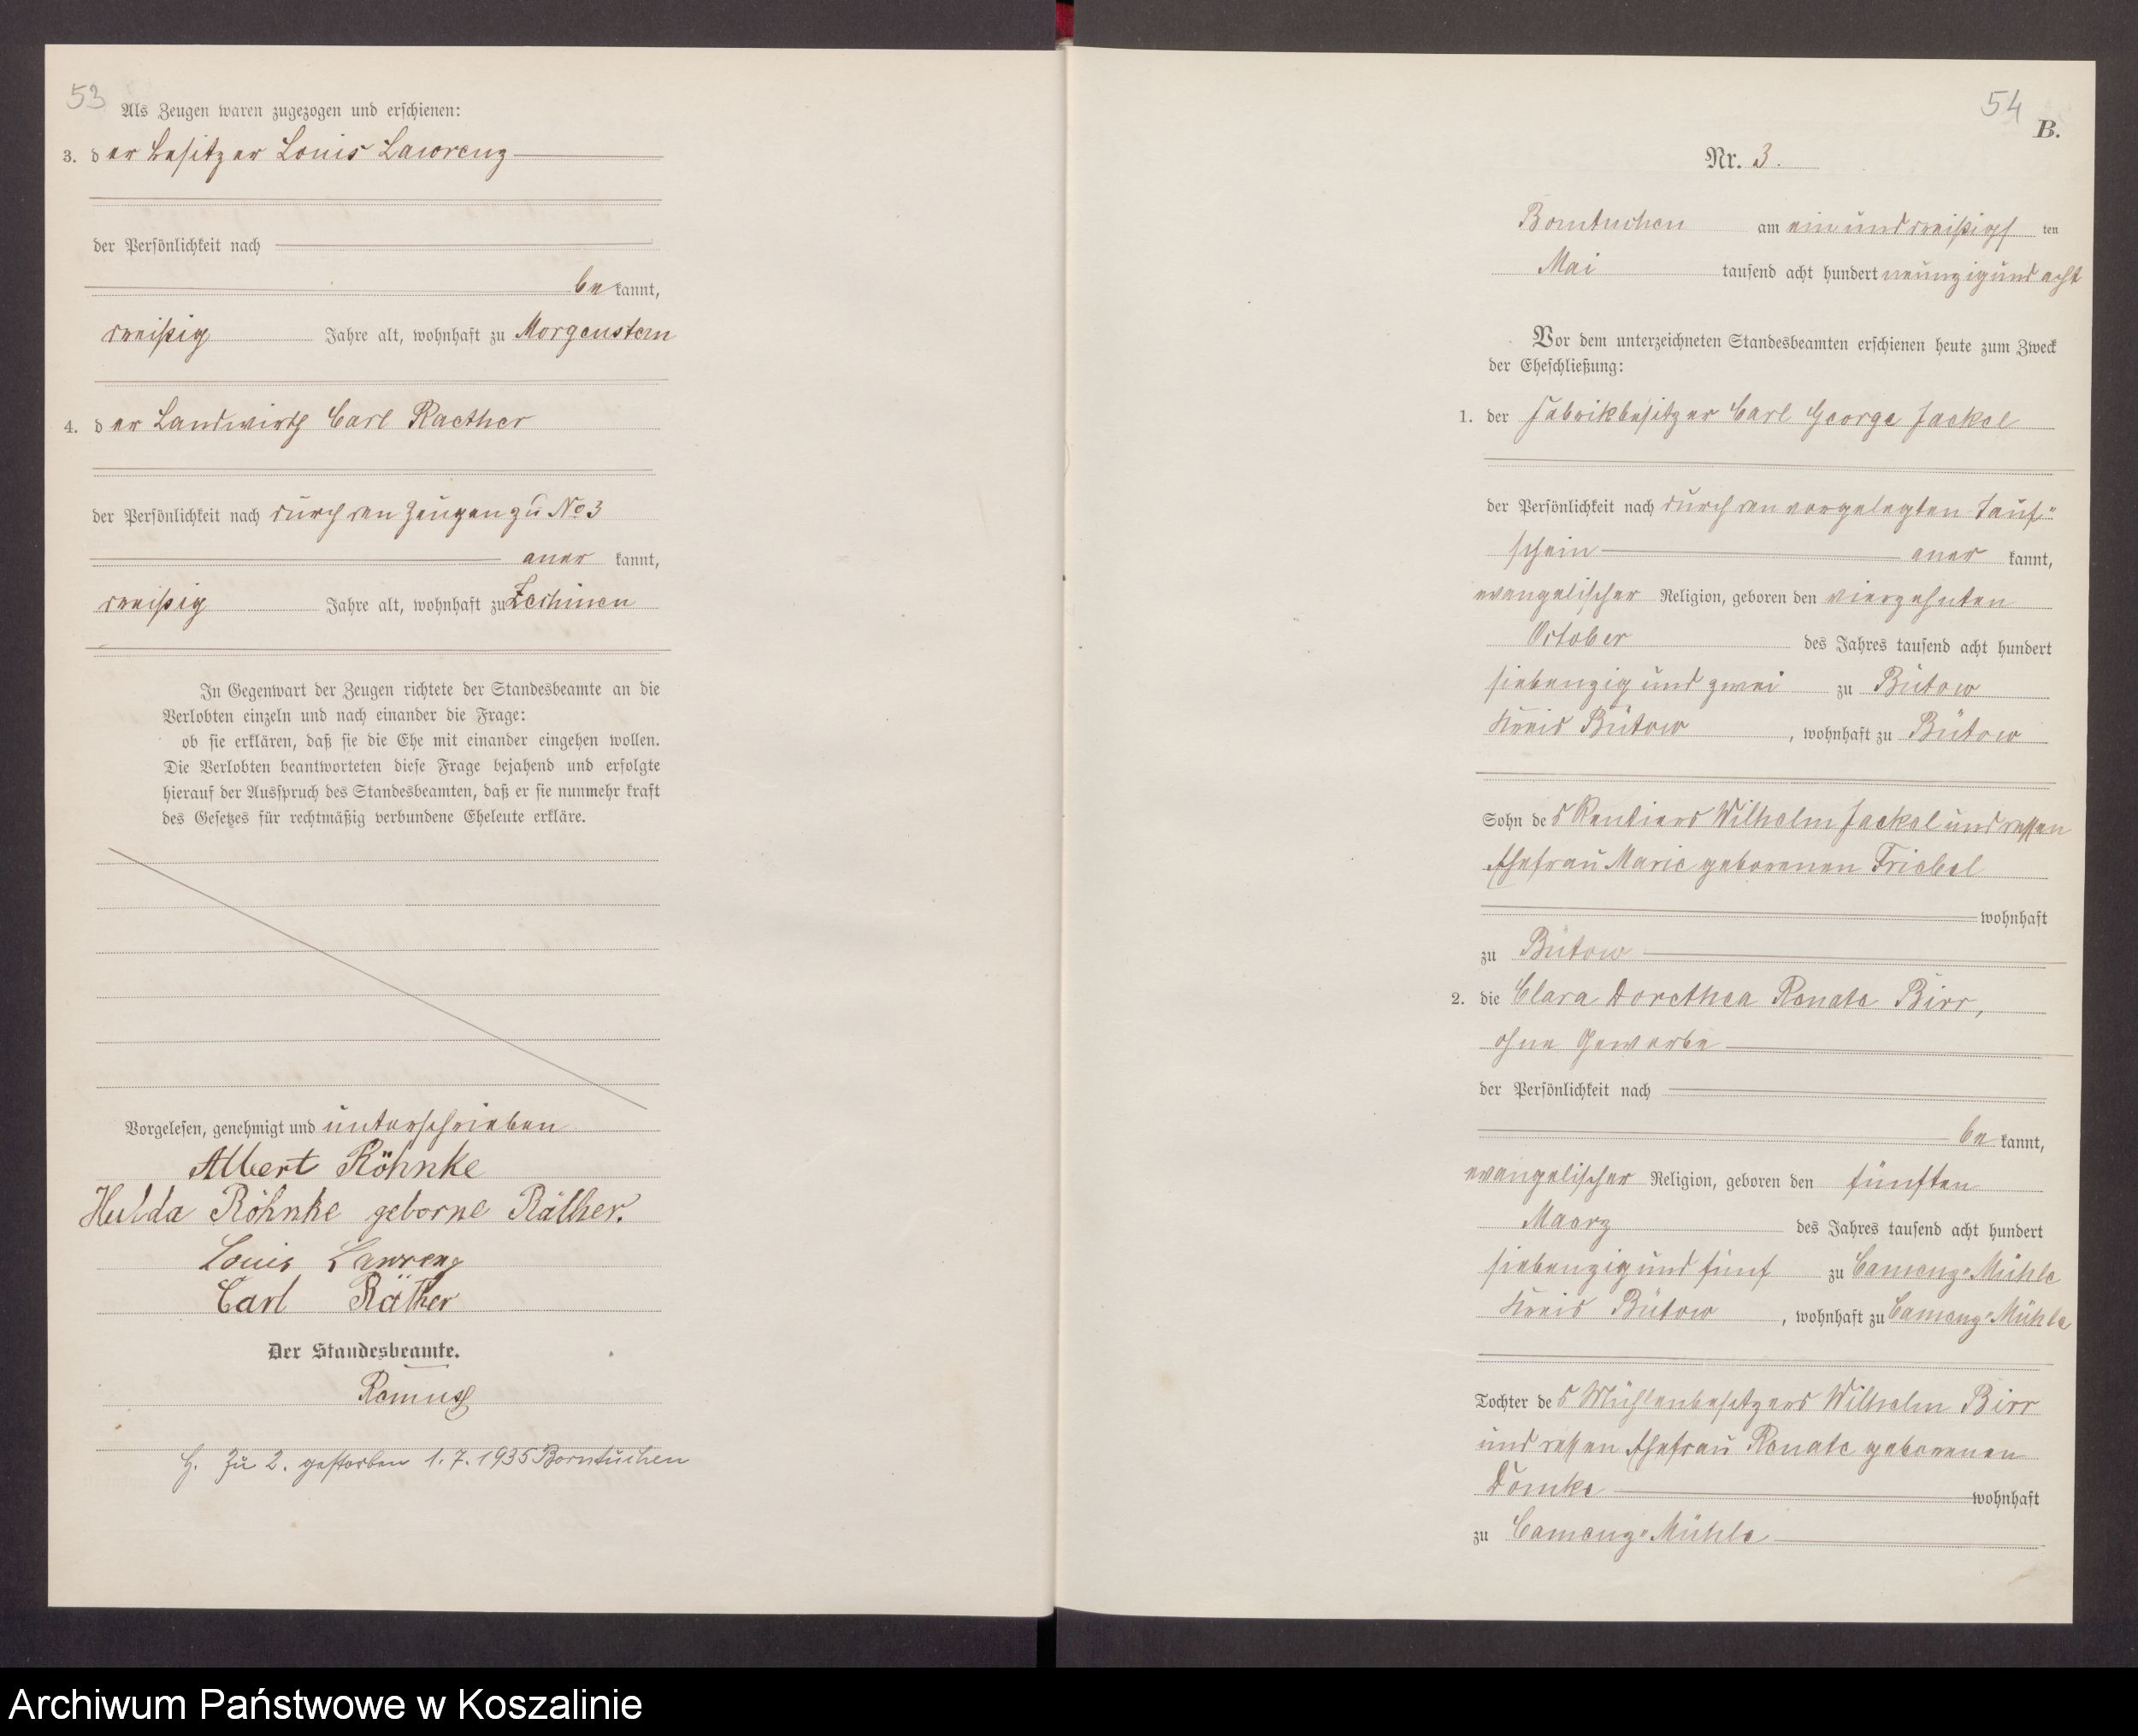 53
Als Zeugen waren zugezogen und erschienen:
3. der Besitzer Louis Lawrenz
der Persönlichkeit nach
bekannt,
dreißig Jahre alt, wohnhaft zu Morgenstern
4. der Landwirth Carl Raether
der Persönlichkeit nach durch den Zeugen zu No 3
anerkannt,
dreißig Jahre alt, wohnhaft zu Zechinen
In Gegenwart der Zeugen richtete der Standesbeamte an die
Verlobten einzeln und nach einander die Frage:
ob sie erklären, daß sie die Ehe mit einander eingehen wollen.
Die Verlobten beantworteten diese Frage bejahend und erfolgte
hierauf der Ausspruch des Standesbeamten, daß er sie nunmehr kraft
des Gesetzes für rechtmäßig verbundene Eheleute erkläre.
Vorgelesen, genehmigt und unterschrieben
Albert Röhnke
Hulda Röhnke geborne Räther.
Louis Lawrenz
Carl Räther
Der Standesbeamte.
Ramus
H. Zu 2. gestorben 1.7.1935 Borntuchen
54
B.
Nr. 3.
Borntuchen am einunddreißigsten
Mai tausend acht hundert neunzig und acht
Vor dem unterzeichneten Standesbeamten erschienen heute zum Zweck
der Eheschließung:
1. der Fabrikbesitzer Carl George Jackel
der Persönlichkeit nach durch den vorgelegten Tauf-
schein anerkannt,
evangelischer Religion, geboren den vierzehnten
October des Jahres tausend acht hundert
siebenzig und zwei zu Bütow
Kreis Bütow, wohnhaft zu Bütow
Sohn des Rentiers Wilhelm Jackel und dessen
Ehefrau Marie geborenen Friebel
wohnhaft
zu Bütow
2. die Clara Dorethea Renate Birr,
ohne Gewerbe
der Persönlichkeit nach
bekannt,
evangelischer Religion, geboren den fünften
Maerz des Jahres tausend acht hundert
siebenzig und fünf zu Camenz-Mühle
Kreis Bütow, wohnhaft zu Camenz-Mühle
Tochter des Mühlenbesitzers Wilhelm Birr
und dessen Ehefrau Renate geborenen
Dömke wohnhaft
zu Camenz-Mühle
Archiwum Państwowe w Koszalinie